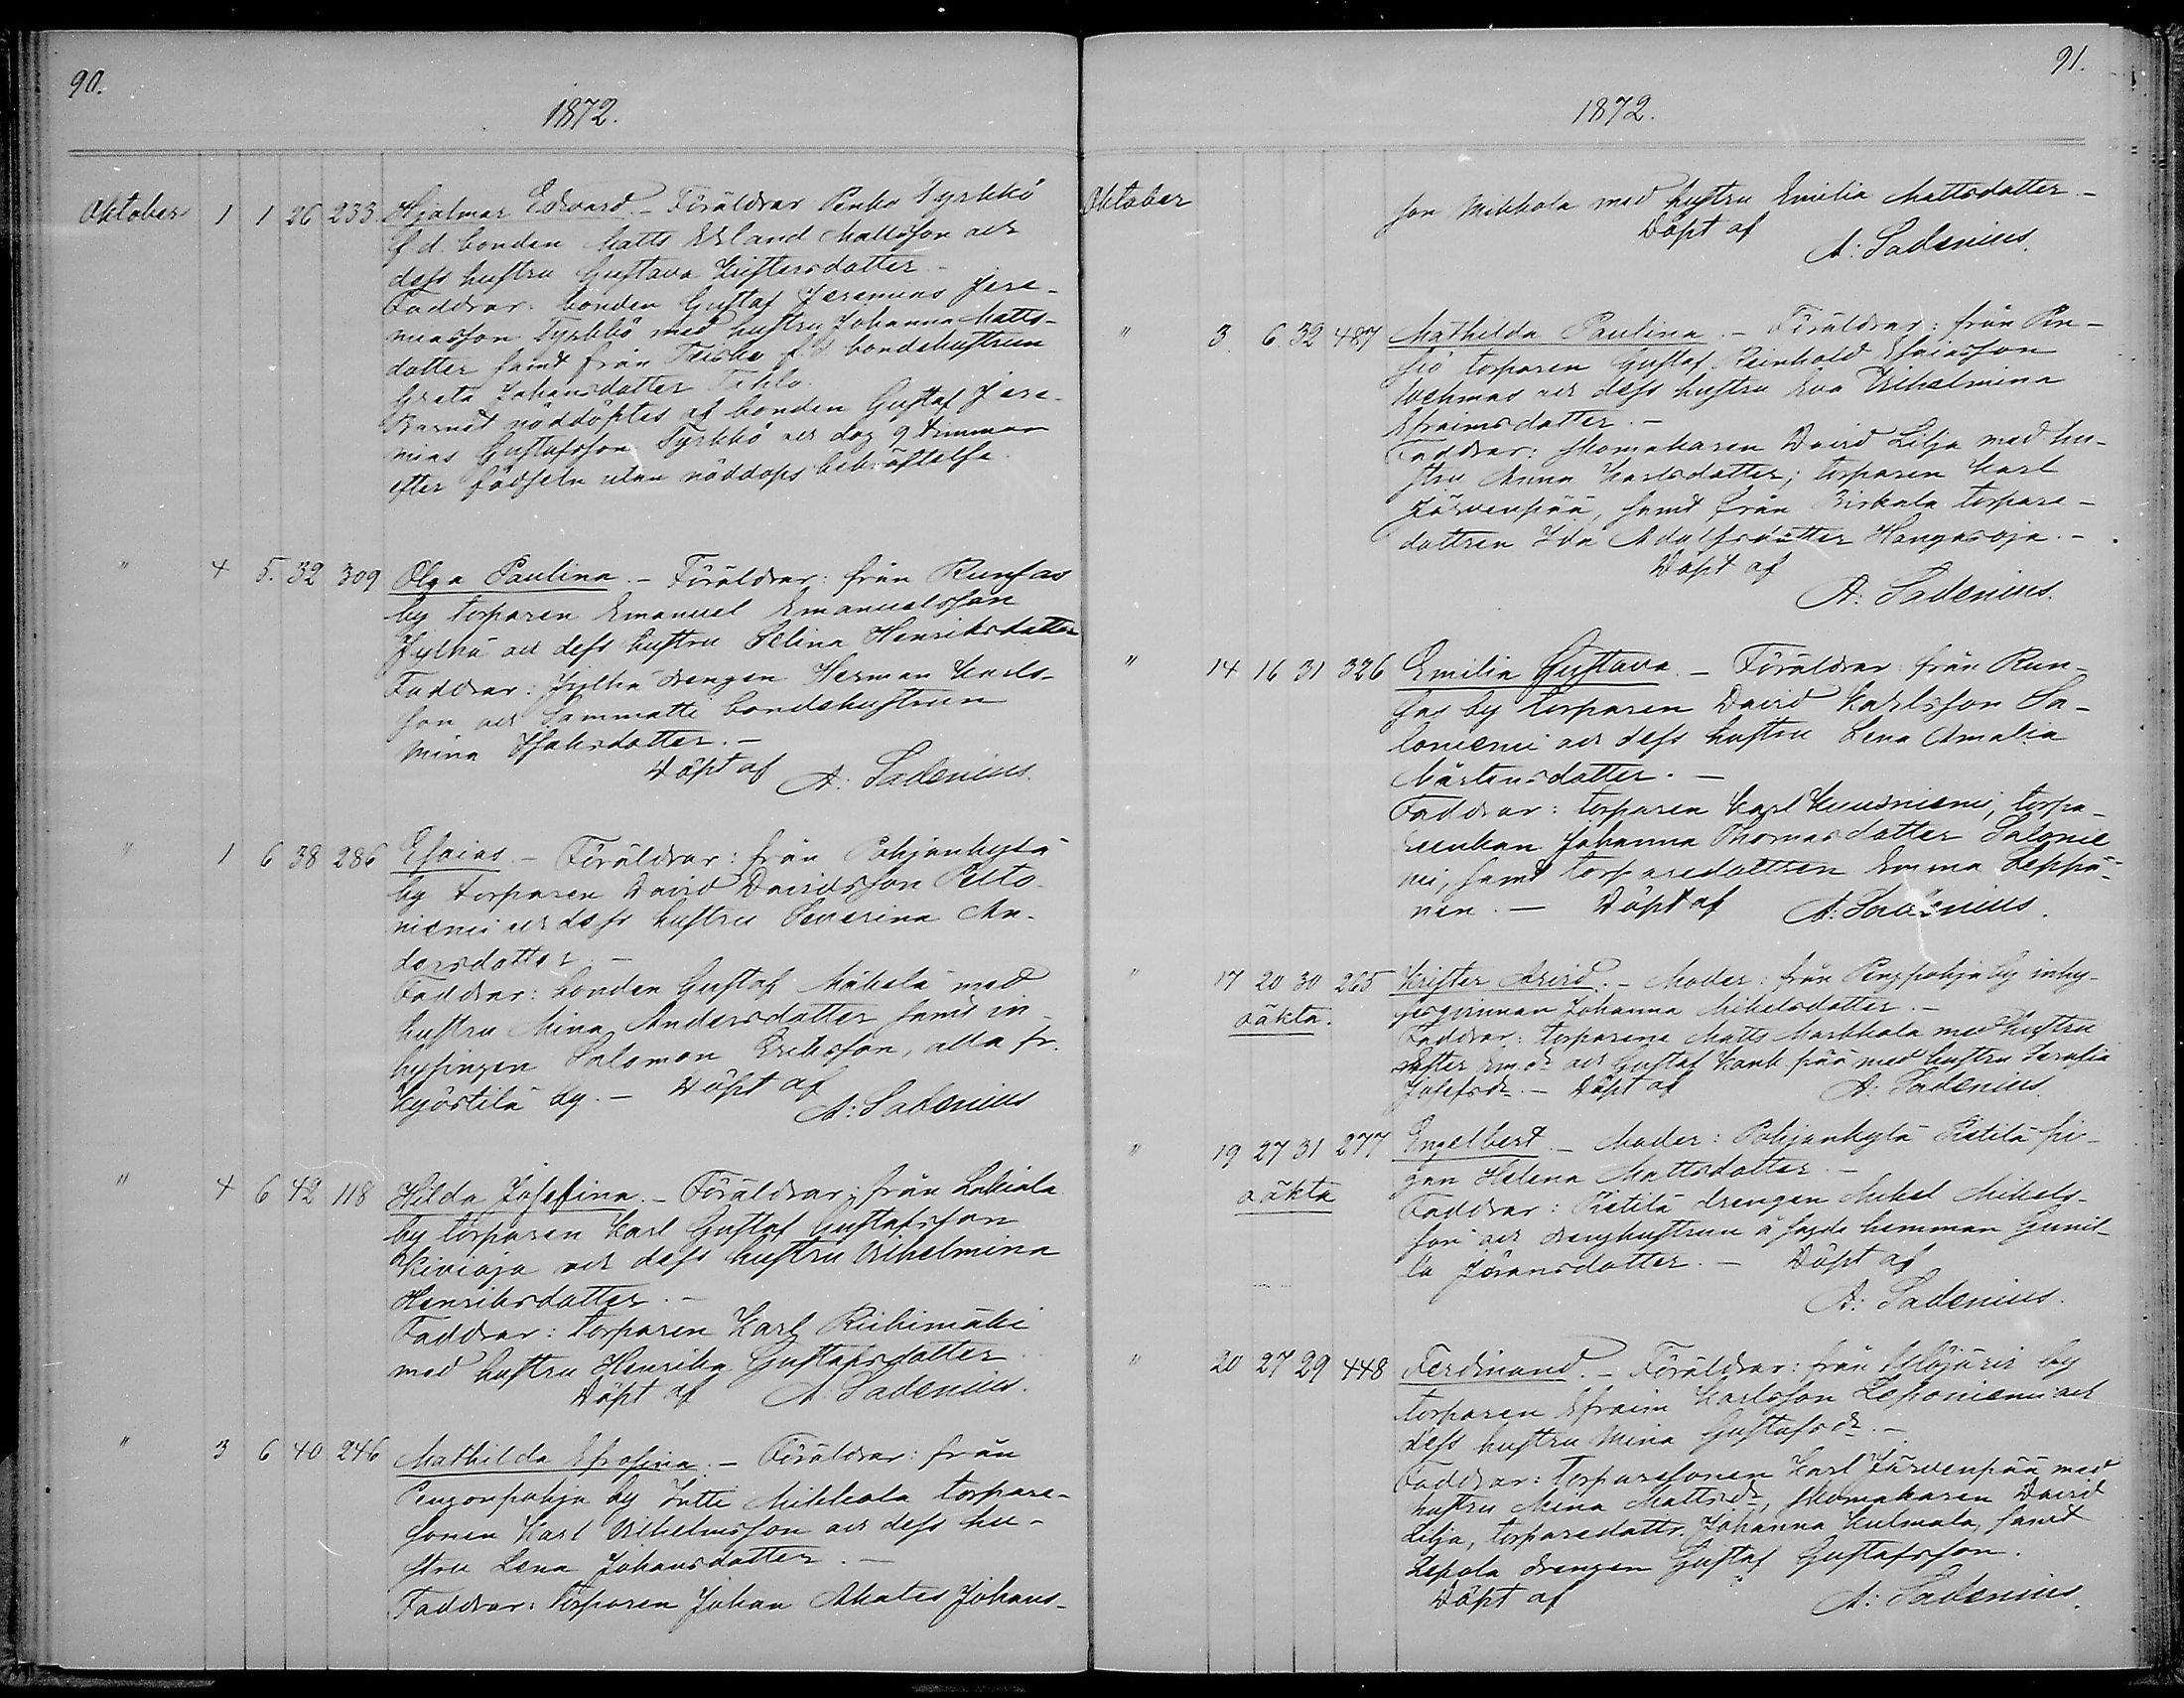 90.
1872.
Oktober 1 1 26 233. Hjalmar Edvard. – Föräldrar Penko Tyrkkö
f. d. bonden Matts Erland Mattsson och
dess hustru Gustava Kristersdotter. –
Faddrar: bonden Gustaf Jeremias Jere-
miasson Tyrkkö med hustru Johanna Matts-
dotter samt från f. d. bondehustrun
Greta Johansdotter
Barnet nöddöptes af bonden Gustaf Jere-
mias Gustafsson Tyrkkö och dog 9 timmar
efter födseln utan nöddops bekräftelse.
" 4 5. 32 309 Olga Paulina. – Föräldrar: från Runsas
by torparen Emanuel Emanuelsson
Jylhä och dess hustru Selina Henriksdotter
Faddrar: Jylhä drengen Herman Karls-
son och Sammatti bondehustrun
Mina Isaksdotter. –
Döpt af A: Sadenius.
" 1 6 38 286 Esaias. – Föräldrar: från Pohjankylä
by torparen David Davidsson Pelto-
niemi och dess hustru Severina An-
dersdotter. –
Faddrar: bonden Gustaf Mäkelä med
hustru Mina Andersdotter samt in-
hysingen Salomon Eriksson, alla fr.
Kyöstilä by. – Döpt af
A: Sadenius
" 4 6 42 118 Hilda Josefina. – Föräldrar; från Lahiala
by torparen Karl Gustaf Gustafsson
Kivioja och dess hustru Vilhelmina
Henriksdotter. –
Faddrar: torparen Karl Riihimäki
med hustru Henrika Gustafsdotter.
Döpt af A. Sadenius.
" 3 6 40 246 Mathilda Efrosina. – Föräldrar: från
Penzonpohja by Jutti Mikkola torpare-
sonen Karl Vilhelmsson och dess hu-
stru Lena Johansdotter. –
Faddrar: torparen Johan Akates Johans-
91.
1872.
Oktober son Mikkola med hustru Emilia Mattsdotter. –
Döpt af
A: Sadenius.
" 3. 6 32 487 Mathilda Paulina. – Föräldrar: från Pin-
siö torparen Gustaf Reinhold Esaiasson
och dess hustru Eva Vilhelmina
Efraimsdotter. –
Faddrar: skomakaren David Lilja med hu-
stru Anna Karlsdotter; torparen Karl
Järvenpää, samt från Birkala torpare-
dottren Ida Adolfsdotter Hangasoja. –
Döpt af
A: Sadenius.
" 14 16 31 326 Emilia Gustava. – Föräldrar: från Run-
sas by torparen David Karlsson Sa-
loniemi och dess hustru Lena Amalia
Mårtensdotter. –
Faddrar: torparen Karl Kuusniemi, torpa-
reenkan Johanna Thomasdotter Salonie
mi, samt torparedottren Emma Leppä-
nen. – Döpt af A: Sadenius.
" 17 20 30 265 Krister Arvid. – Moder: från Penzpohja by inhy-
oäkta. sesqvinnan Johanna Mikelsdotter. –
Faddrar: torparene Matts Markkola med hustru
Ester och Gustaf med hustru Serafia
Josefsdr. – Döpt af A: Sadenius.
" 19 27 31 277 Engelbert. – Moder: Pohjankylä Pietilä pi-
oäkta gan Helena Mattsdotter. –
Faddrar: Pietilä drengen Mikel Mikels-
son och drenghustrun å sagde hemman Gunil-
la Göransdotter. – Döpt af
A: Sadenius.
" 20 27 29 448 Ferdinand. – Föräldrar: från Ylöjärvi by
torparen Efraim Karlsson Leponiemi och
dess hustru Mina Gustafsdr. –
Faddrar: torparesonen Karl Järvenpää med
hustru Mina Mattsdr, skomakaren David
Lilja, torparedottr. Johanna Kulmala, samt
Lepola drengen Gustaf Gustafsson.
Döpt af A: Sadenius.